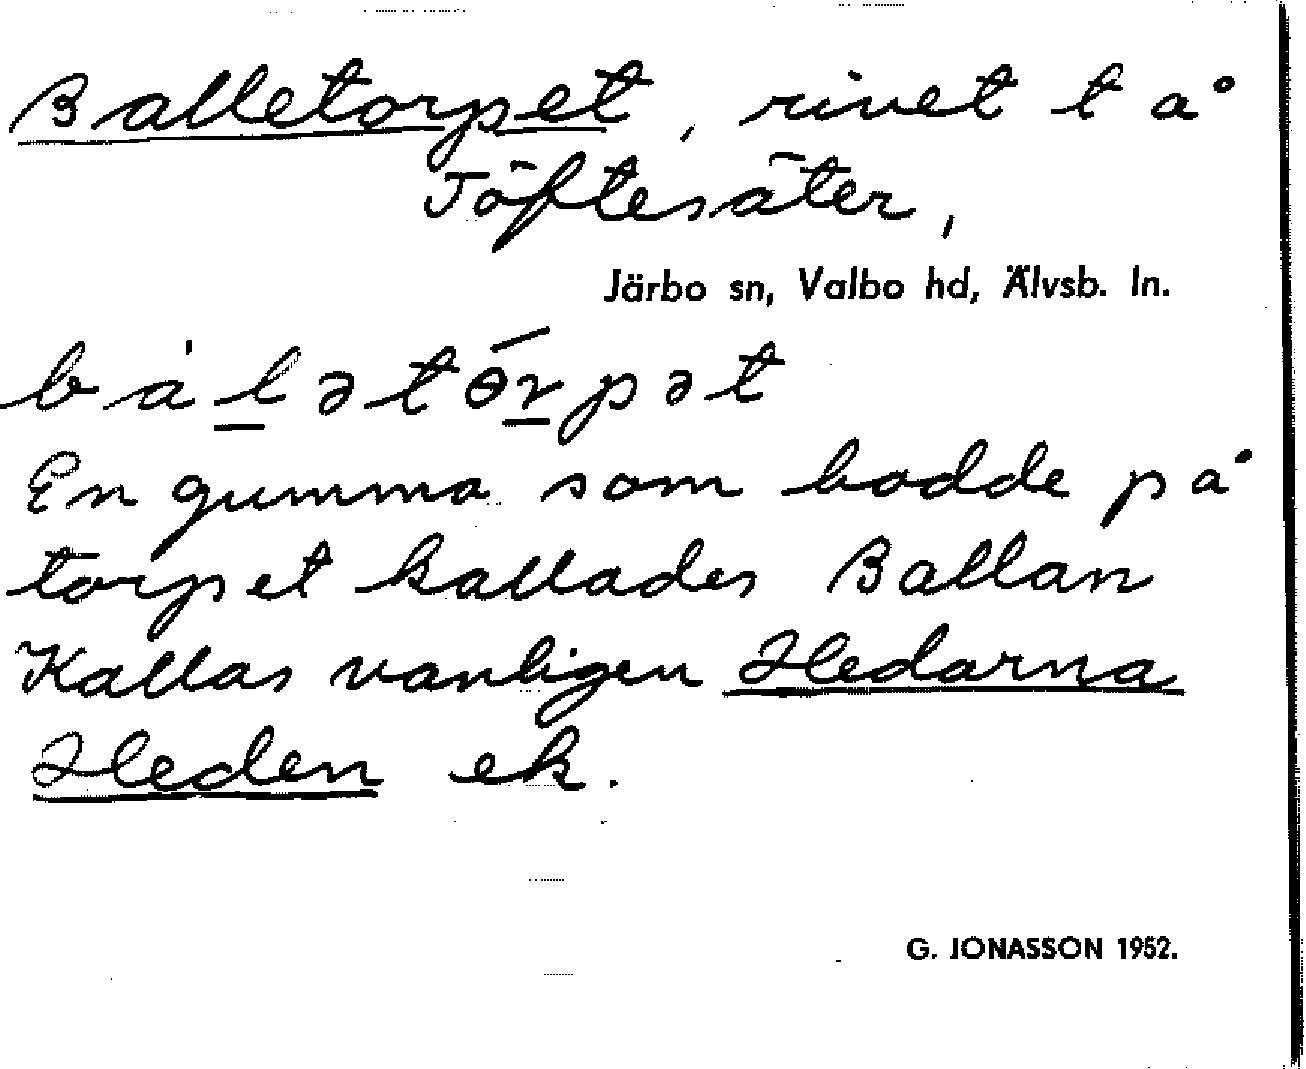 Balletorpet, rivet t å
Töftesäter,
Järbo sn, Valbo hd, Älvsb. ln.
bálətɵ́rpət
En gumma som bodde på
torpet kallades Ballan
Kallas vanligen Hedarna
Heden ek.
G. JONASSON 1952.